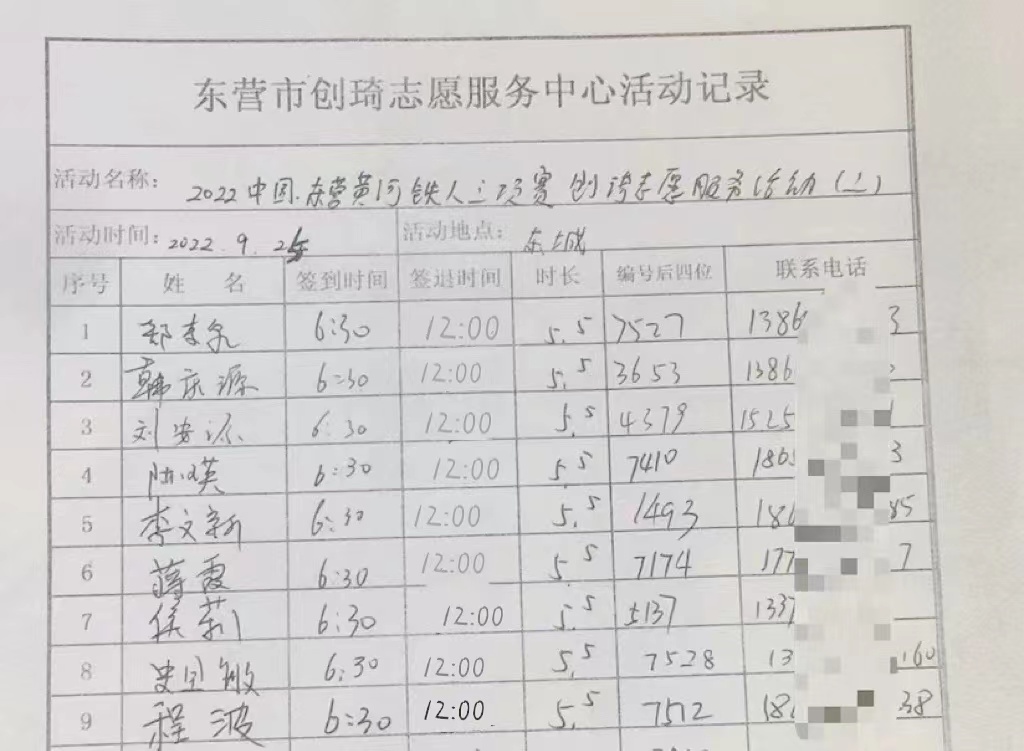 东营市创琦志愿服务中心活动记录
活动名称: 2022中国·东营黄河铁人三项赛创琦志愿服务活动(二)
活动时间: 2022.9.25 活动地点: 东城
序号 姓名 签到时间 签退时间 时长 编号后四位 联系电话
1 6:30 12:00 5.5 7527 1386 3
2 韩庆源 6:30 12:00 5.5 3653 1386
3 刘安源 6:30 12:00 5.5 4379 1525
4 6:30 12:00 5.5 7410 186 3
5 李文新 6:30 12:00 5.5 1493 18 85
6 蒋霞 6:30 12:00 5.5 7174 177 7
7 侯莉 6:30 12:00 5.5 5137 1337
8 史国敏 6:30 12:00 5.5 7528 13 160
9 程波 6:30 12:00 5.5 7512 18 38